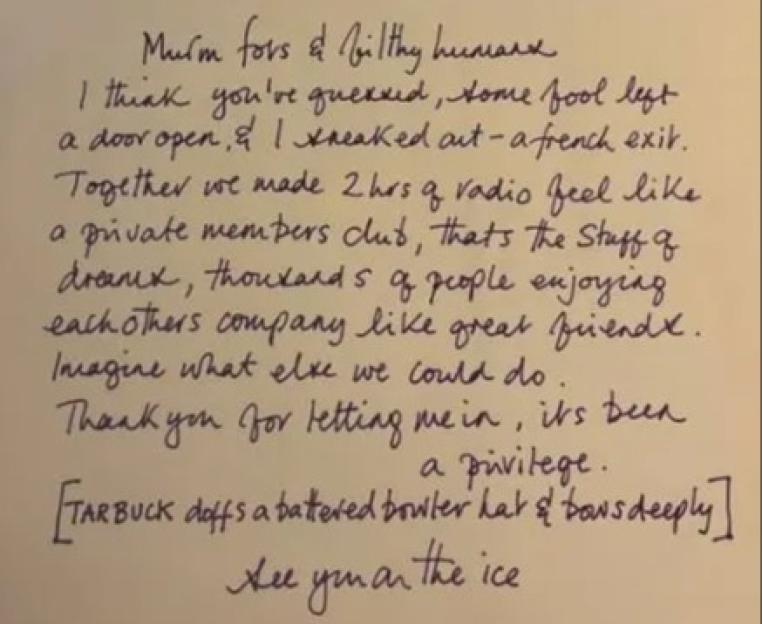 Murm fors & filthy humans
I think you've guessed, some fool left
a door open, & I sneaked out – a french exit.
Together we made 2hrs of radio feel like
a private members club, thats the Stuff of
dreams, thousands of people enjoying
each others company like great friends.
Imagine what else we could do.
Thank you for letting me in, its been
a privilege.
[TARBUCK doffs a battered bowler hat & bows deeply]
See you on the ice